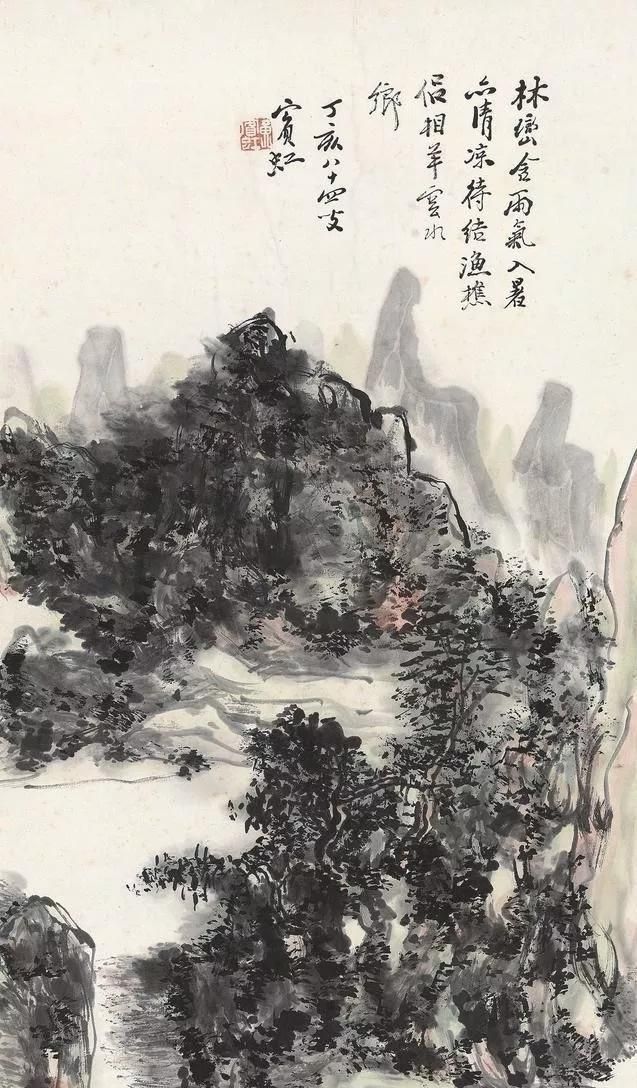 林巒含雨氣入暑
亦清涼待結漁樵
侶相羊雲水
鄉
丁亥八十四叟
賓虹
黃賓虹